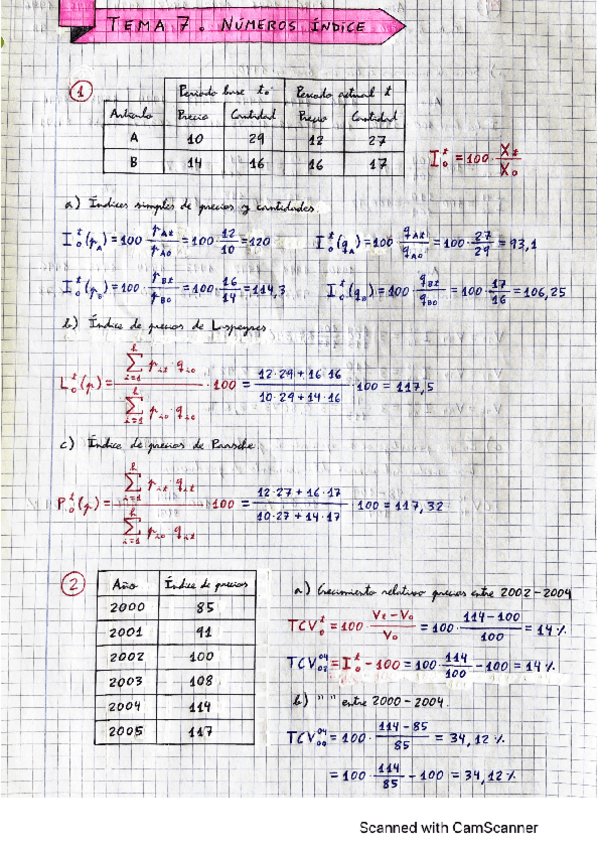 TEMA 7. NÚMEROS ÍNDICE
1
Periodo base t₀ Periodo actual t
Artículo Precio Cantidad Precio Cantidad
A 10 29 12 27
B 14 16 16 17
I₀ᵗ = 100 · Xₜ/X₀
a) Índices simples de precios y cantidades
I₀ᵗ(p_A) = 100 · p_At/p_A0 = 100 · 12/10 = 120 I₀ᵗ(q_A) = 100 · q_At/q_A0 = 100 · 27/29 = 93,1
I₀ᵗ(p_B) = 100 · p_Bt/p_B0 = 100 · 16/14 = 114,3 I₀ᵗ(q_B) = 100 · q_Bt/q_B0 = 100 · 17/16 = 106,25
b) Índice de precios de Laspeyres
L₀ᵗ(p) = ∑ᵢ₌₁ᵏ pᵢₜ · qᵢ₀ / ∑ᵢ₌₁ᵏ pᵢ₀ · qᵢ₀ · 100 = 12·29+16·16 / 10·29+14·16 · 100 = 117,5
c) Índice de precios de Paasche
P₀ᵗ(p) = ∑ᵢ₌₁ᵏ pᵢₜ · qᵢₜ / ∑ᵢ₌₁ᵏ pᵢ₀ · qᵢₜ · 100 = 12·27+16·17 / 10·27+14·17 · 100 = 117,32
2
Año Índice de precios
2000 85
2001 91
2002 100
2003 108
2004 114
2005 117
a) Crecimiento relativo precios entre 2002-2004
TCV₀ᵗ = 100 · Vₜ-V₀/V₀ = 100 · 114-100/100 = 14%
TCV₀₂⁰⁴ = I₀ᵗ - 100 = 100 · 114/100 - 100 = 14%
b) " " entre 2000-2004.
TCV₀₀⁰⁴ = 100 · 114-85/85 = 34,12%
= 100 · 114/85 - 100 = 34,12%
Scanned with CamScanner